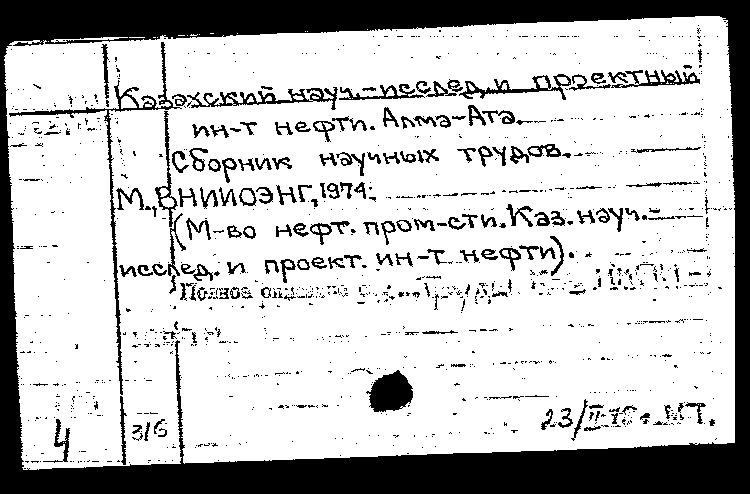 Казахский науч.-исслед. и проектный
ин-т нефти. Алма-Ата.
Сборник научных трудов.
М., ВНИИОЭНГ, 1974.
(М-во нефт. пром-сти. Каз. науч.-
исслед. и проект. ин-т нефти).
Полное описание Труды
4 3/6 23/II МТ.